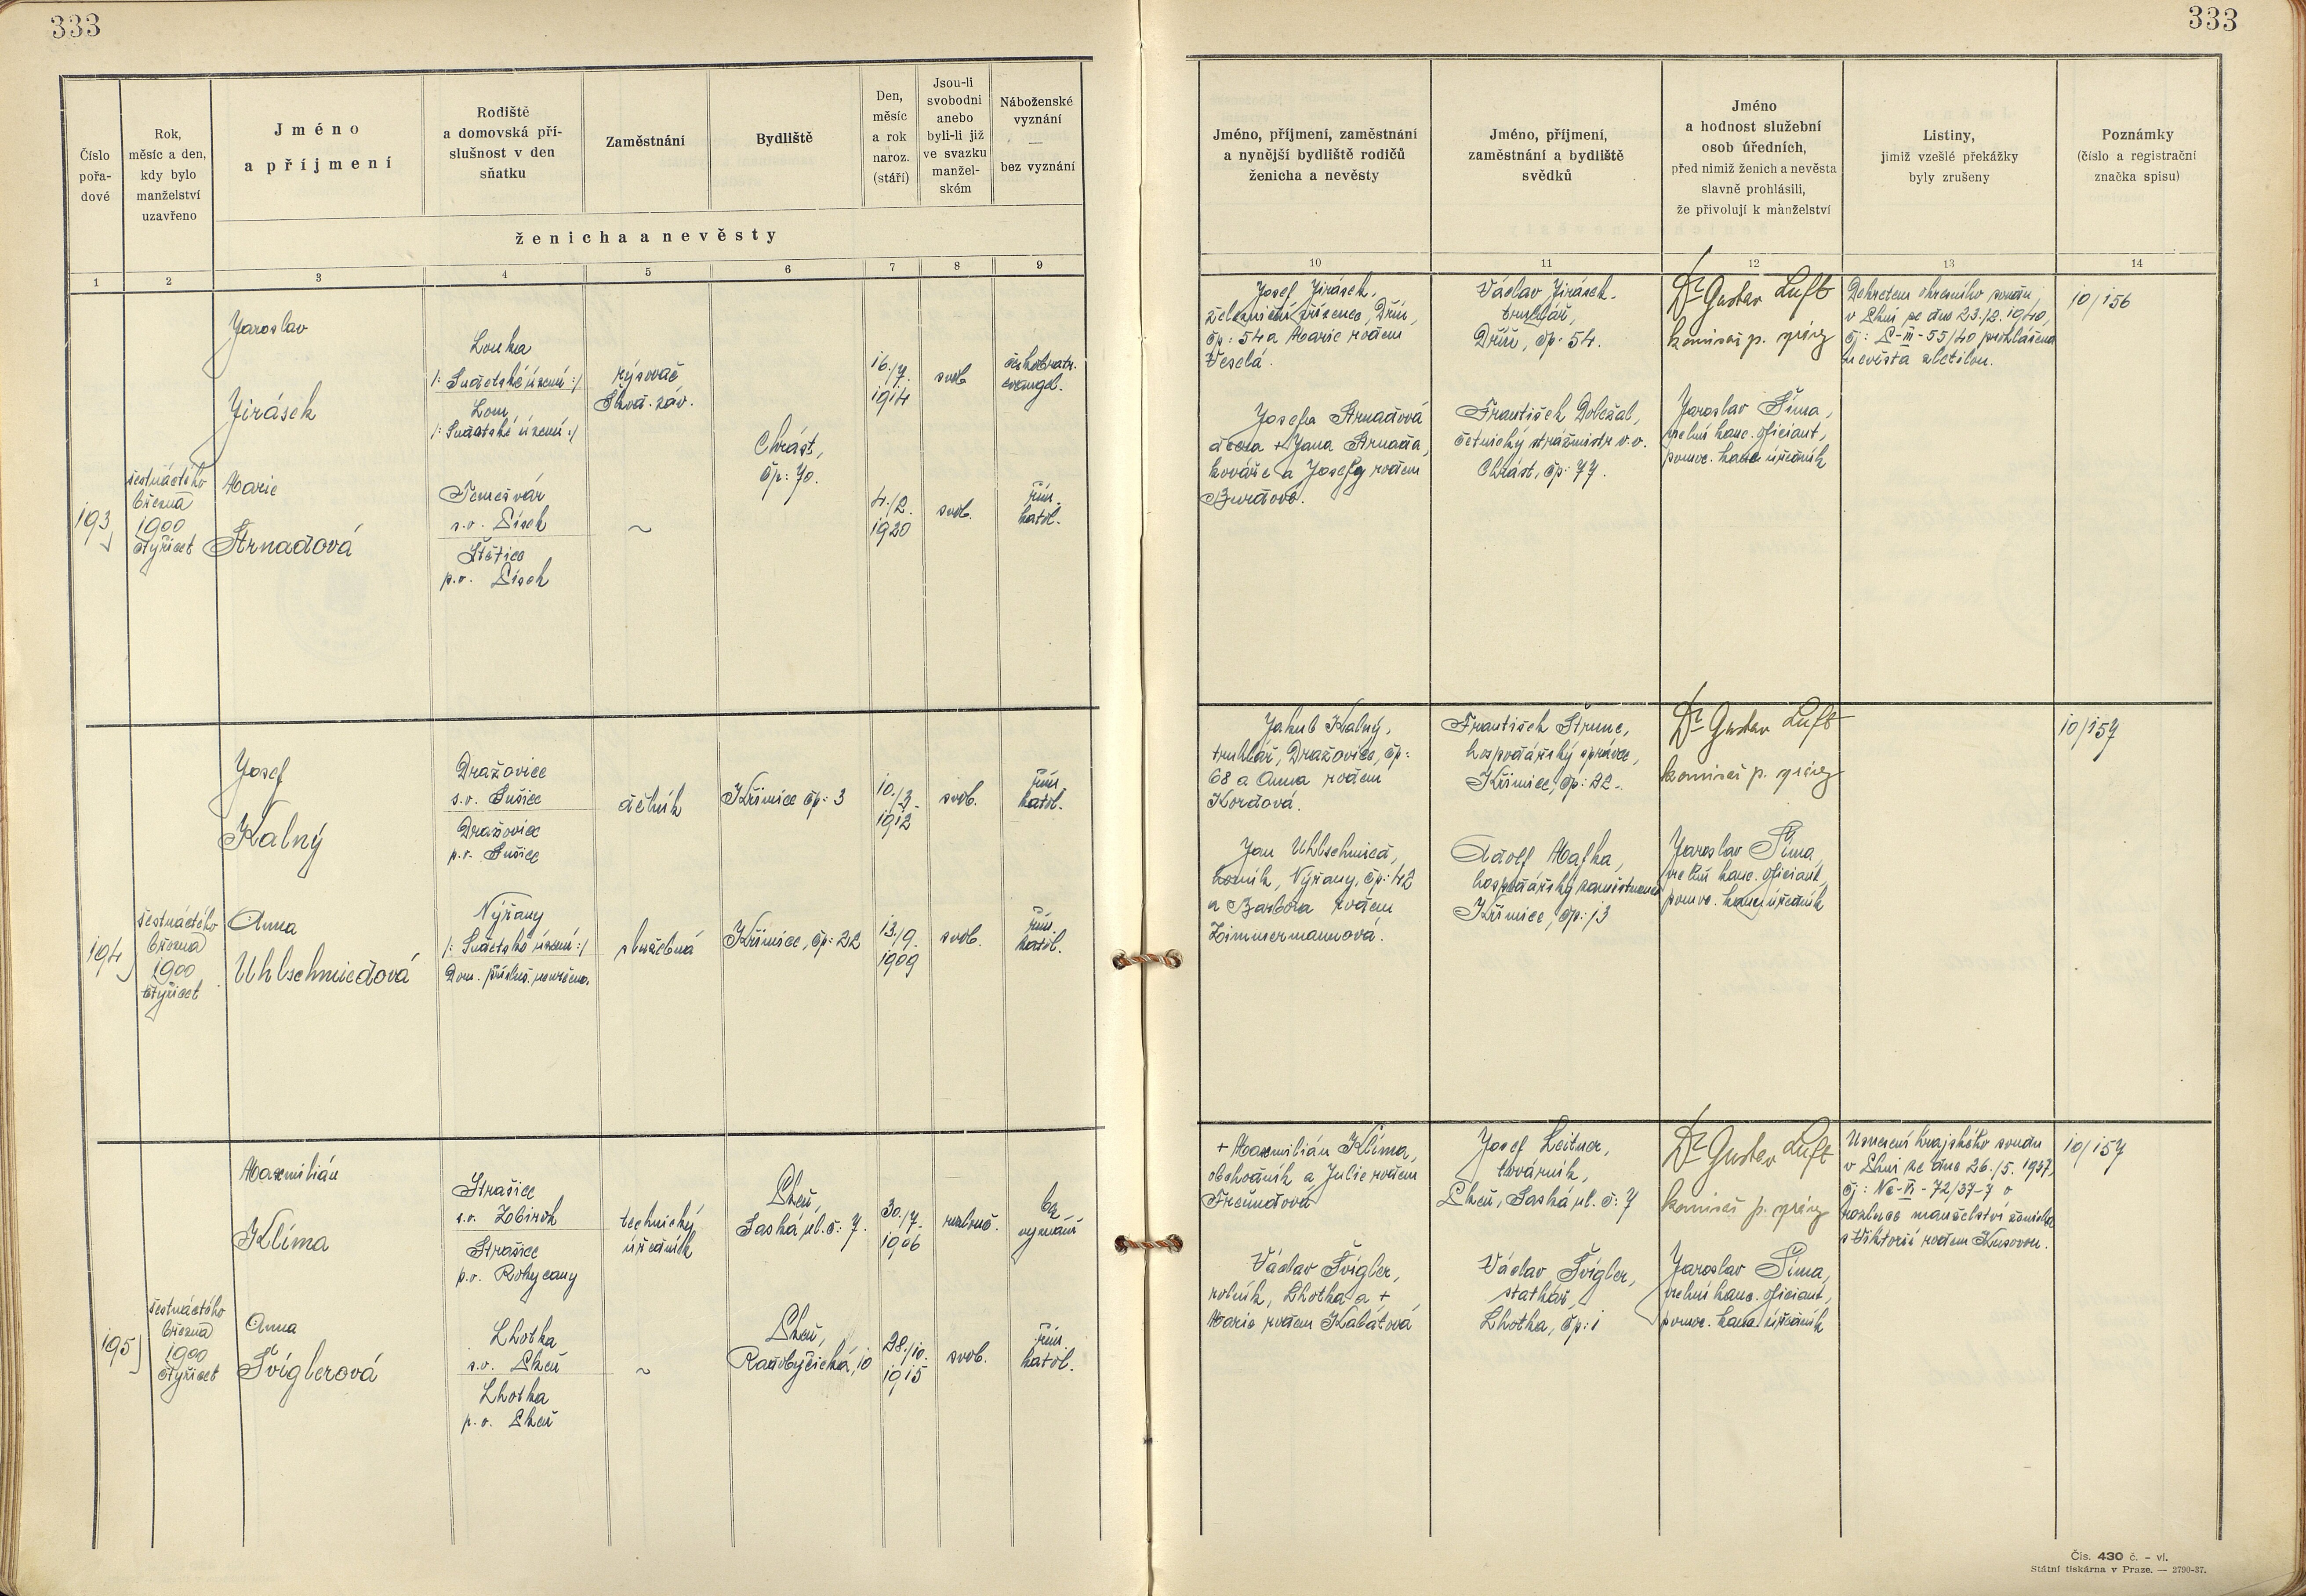 333
333
Číslo
pořa-
dové
Rok,
měsíc a den,
kdy bylo
manželství
uzavřeno
Jméno
a příjmení
Rodiště
a domovská pří-
slušnost v den
sňatku
Zaměstnání
Bydliště
Den,
měsíc
a rok
naroz.
(stáří)
Jsou-li
svobodni
anebo
byli-li již
ve svazku
manžel-
ském
Náboženské
vyznání
—
bez vyznání
ženicha a nevěsty
Jméno, příjmení, zaměstnání
a nynější bydliště rodičů
ženicha a nevěsty
Jméno, příjmení,
zaměstnání a bydliště
svědků
Jméno
a hodnost služební
osob úředních,
před nimiž ženich a nevěsta
slavně prohlásili,
že přivolují k manželství
Listiny,
jimiž vzešlé překážky
byly zrušeny
Poznámky
(číslo a registrační
značka spisu)
1 2 3 4 5 6 7 8 9 10 11 12 13 14
193
šestnáctého
března
1900
čtyřicet
Jaroslav
Jirásek
Louka
/: Sudetské území :/
Lom
/: Sudetské území :/
rýsovač
Škod. záv.
Chrást,
čp: 70.
16./7.
1914
svob
českobratr.
evangel.
Marie
Strnadová
Temešvár
s.o.
p.o.
~
4./2.
1920
svob.
řím.
katol.
Josef Jirásek,
železniční zřízenec,
čp: 54 a Marie rodem
Veselá.
Josefa Strnadová
dcera + Jana Strnada,
kováře a Josefy rodem
Václav Jirásek,
truhlář,
čp: 54.
František Doležal,
četnický strážmistr v. v.
Chrást, čp: 77.
Dr Gustav Luft
komisař p. správy
Jaroslav Šíma,
řed. kanc. oficiant,
pomoc. kanc. úředník
Dekretem okresního soudu
v Plzni ze dne 23./2. 1940,
čj: P-III-55/40 prohlášena
nevěsta zletilou.
10/156
194
šestnáctého
března
1900
čtyřicet
Josef
Kalný
Dražovice
s.o. Sušice
Dražovice
p.o. Sušice
dělník
Křimice čp: 3
10./3.
1912
svob.
řím.
katol.
Anna
Uhlschmiedová
Nýřany
/: Sudetské území :/
Dom. přísluš. neurčena.
služebná
Křimice, čp: 22
13./9.
1909
svob.
řím.
katol.
Jakub Kalný,
truhlář, Dražovice, čp:
68 a Anna rodem
Kordová.
Jan Uhlschmied,
horník, Nýřany, čp: 42
a Barbora rodem
Zimmermannová.
František Štrunc,
hospodářský správce,
Křimice, čp: 22.
Adolf Mafka,
hospodářský zaměstnanec
Křimice, čp: 13
Dr Gustav Luft
komisař p. správy
Jaroslav Šíma,
řed. kanc. oficiant,
pomoc. kanc. úředník
10/157
195
šestnáctého
března
1900
čtyřicet
Maxmilián
Klíma
Strašice
s.o. Zbiroh
Strašice
p.o. Rokycany
technický
úředník
Plzeň,
Saská ul. č: 7.
30./7.
1906
rozluč.
bez
vyznání
Anna
Švíglerová
Lhotka
s.o. Plzeň
Lhotka
p.o. Plzeň
~
Plzeň,
Radobyčická, 10
28./10.
1915
svob.
řím.
katol.
+ Maxmilián Klíma,
obchodník a Julie rodem
Freundová
Václav Švígler,
rolník, Lhotka a +
Marie rodem Kabátová
Josef Leitner,
továrník,
Plzeň, Saská ul. č: 7
Václav Švígler,
statkář,
Lhotka, čp: 1
Dr Gustav Luft
komisař p. správy
Jaroslav Šíma,
řed. kanc. oficiant,
pomoc. kanc. úředník
Usnesení krajského soudu
v Plzni ze dne 26./5. 1937,
čj: Nc-VI-72/37-7 o
rozluce manželství ženicha
s Viktorií rodem
10/157
Čís. 430 č. – vl.
Státní tiskárna v Praze. — 2790-37.